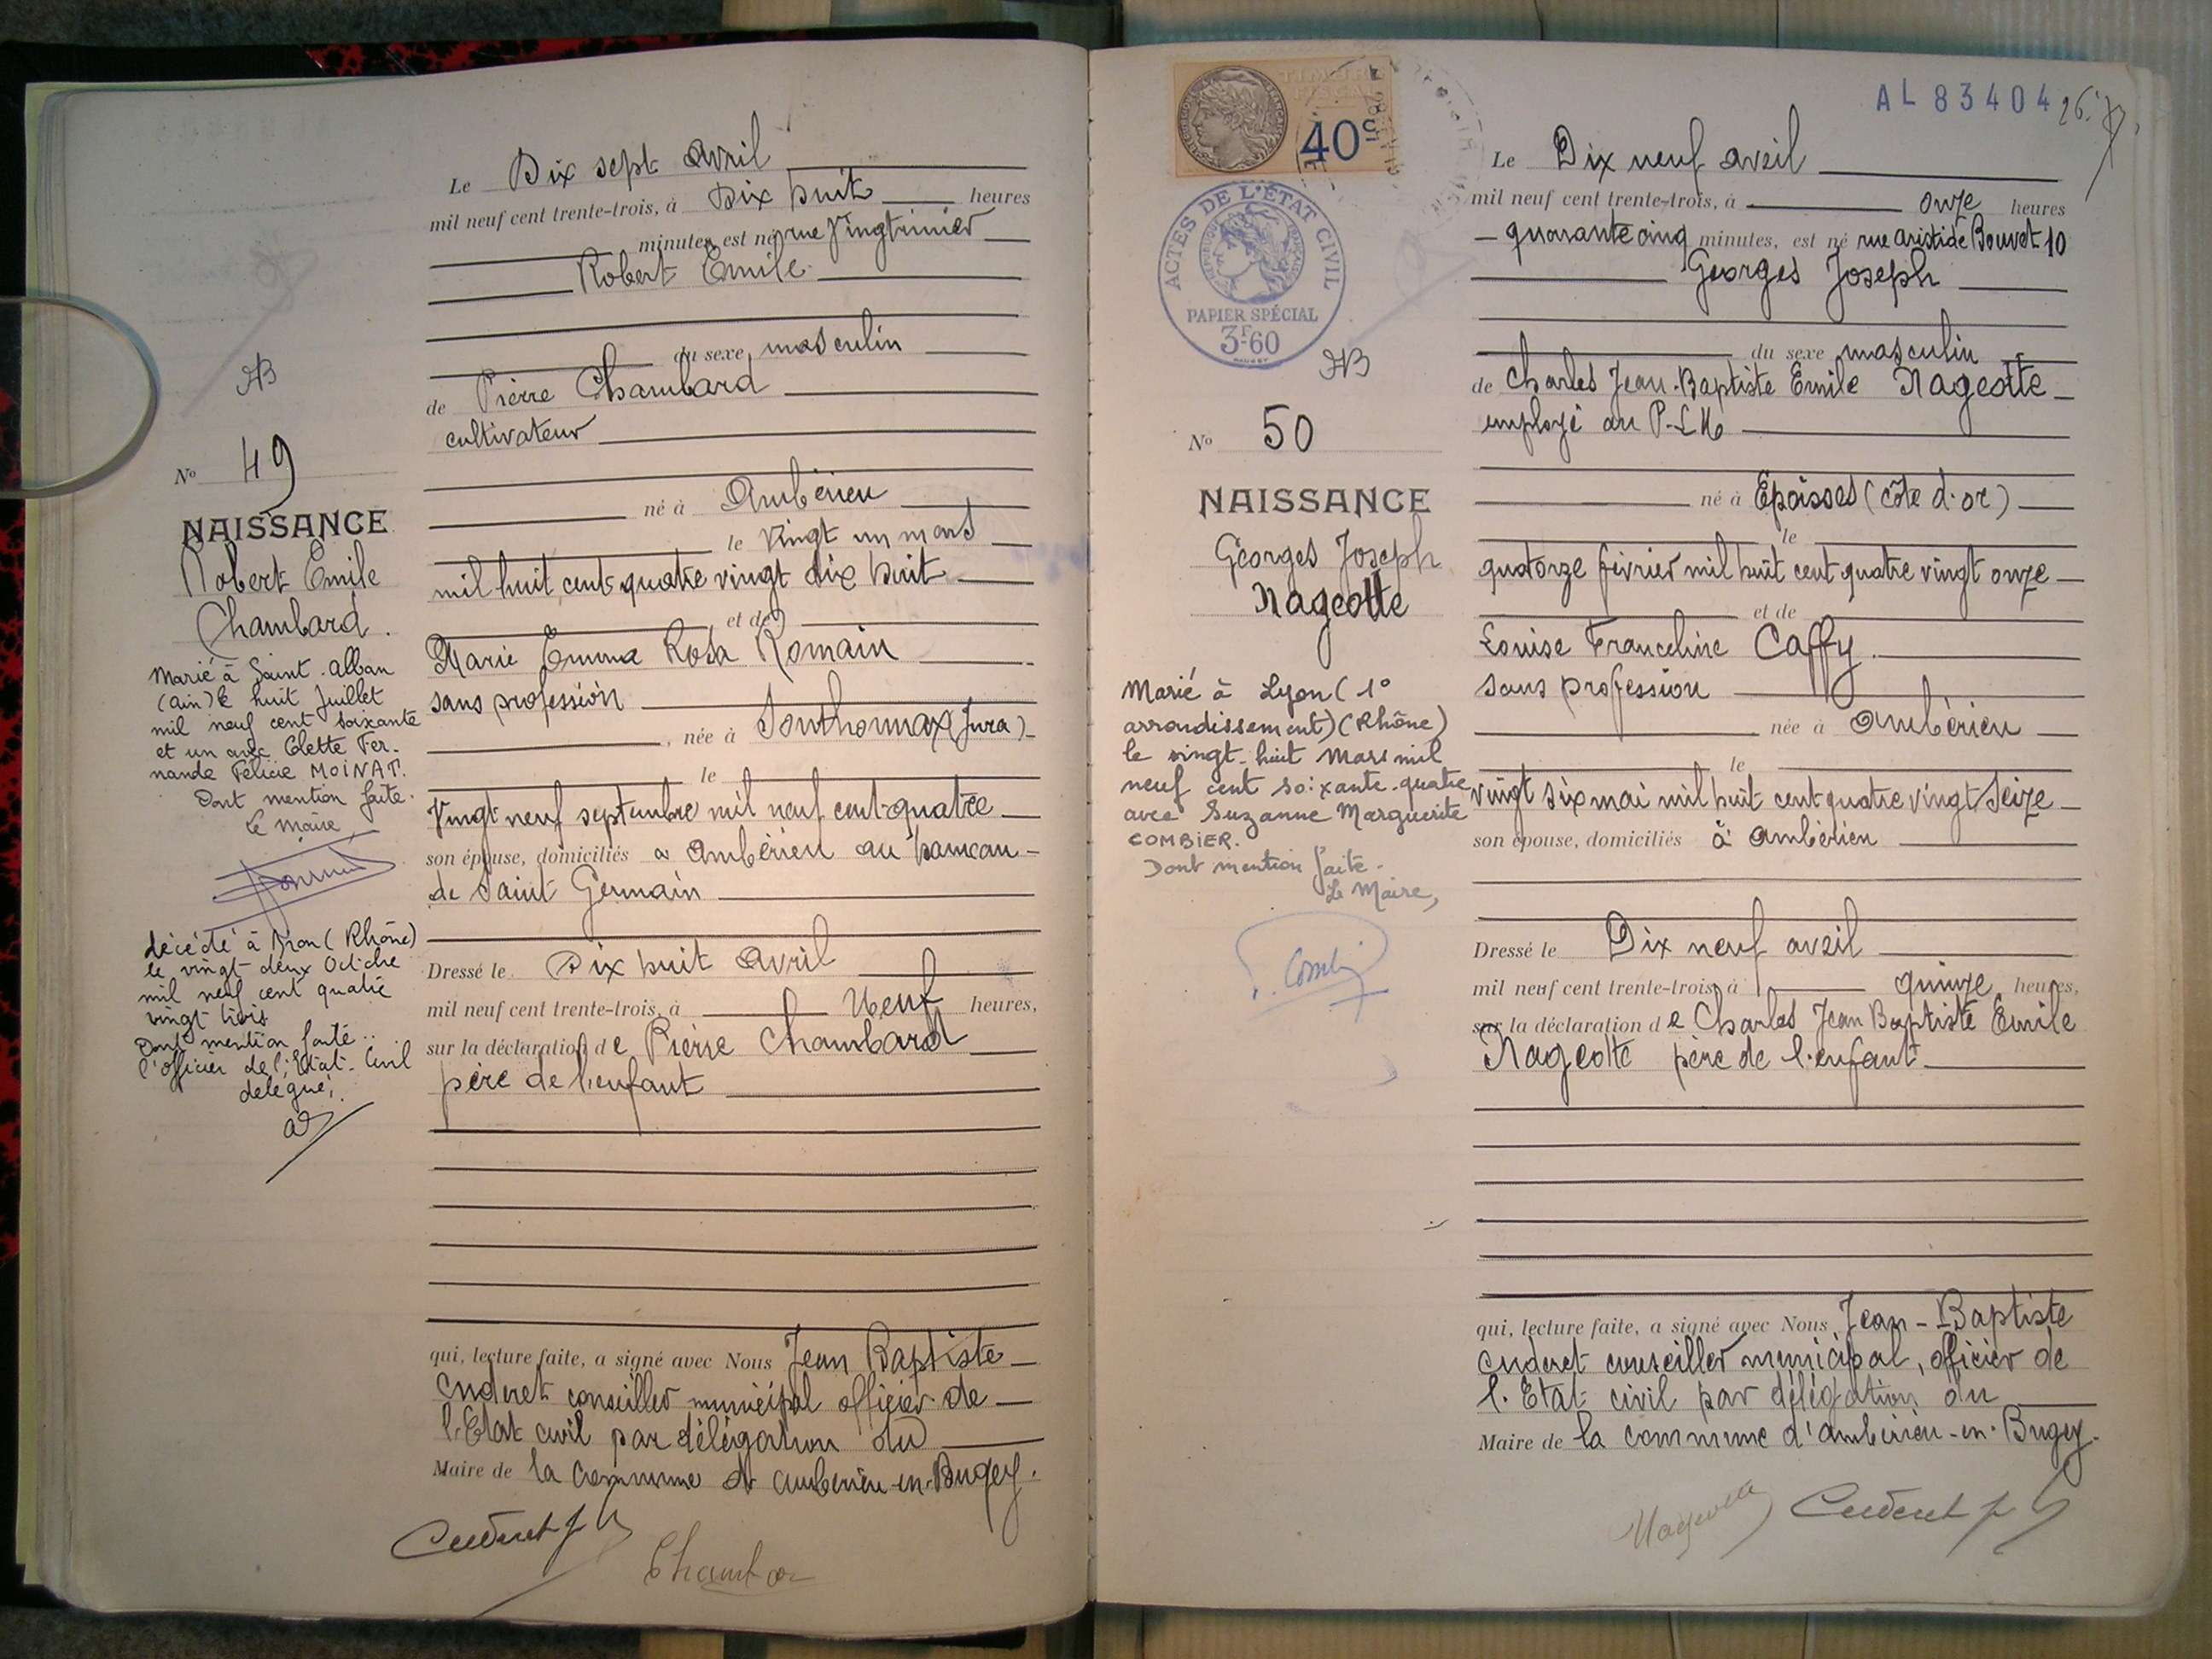 Le Dix sept avril
mil neuf cent trente-trois, à Dix huit heures
minutes, est né rue Vingtrinier
Robert Emile
du sexe masculin
de Pierre Chambard
cultivateur
né à Ambérieu
le vingt un mars
mil huit cent quatre vingt dix huit
et de
Marie Emma Rosa Romain
sans profession
, née à Sonthonnax (Jura)
le
Vingt neuf septembre mil neuf cent quatre
son épouse, domiciliés à Ambérieu au hameau
de Saint Germain
Dressé le Dix huit avril
mil neuf cent trente-trois, à Neuf heures,
sur la déclaration de Pierre Chambard
père de l'enfant
qui, lecture faite, a signé avec Nous Jean Baptiste
Cuderet conseiller municipal officier de
l'Etat civil par délégation du
Maire de la Commune d'Ambérieu-en-Bugey.
Cuderet
Chambar
AB
No 49
NAISSANCE
Robert Emile
Chambard.
Marié à Saint-Alban
(Ain) le huit Juillet
mil neuf cent soixante
et un avec Colette Fer-
nande Félicie MOINAT.
Dont mention faite.
Le Maire,
décédé à Bron (Rhône)
le vingt deux Octobre
mil neuf cent quatre
vingt trois
Dont mention faite..
l'officier de l'Etat-Civil
délégué,
TIMBRE
FISCAL
40c
AL 83404
26.
ACTES DE L'ÉTAT CIVIL
RÉPUBLIQUE FRANÇAISE
PAPIER SPÉCIAL
3F60
AB
No 50
NAISSANCE
Georges Joseph
Nageotte
Marié à Lyon (1°
arrondissement) (Rhône)
le vingt-huit Mars mil
neuf cent soixante-quatre
avec Suzanne Marguerite
COMBIER.
Dont mention faite-
Le Maire,
Le Dix neuf avril
mil neuf cent trente-trois, à onze heures
quarante cinq minutes, est né rue Aristide Bouvet 10
Georges Joseph
du sexe masculin
de Charles Jean-Baptiste Emile Nageotte
employé au P-L M
né à Epoisses (Côte d'or)
le
quatorze février mil huit cent quatre vingt onze
et de
Louise Franceline Caffy
sans profession
née à Ambérieu
le
vingt six mai mil huit cent quatre vingt seize
son épouse, domiciliés à Ambérieu
Dressé le Dix neuf avril
mil neuf cent trente-trois, à quinze heures,
sur la déclaration de Charles Jean Baptiste Emile
Nageotte père de l'enfant
qui, lecture faite, a signé avec Nous Jean-Baptiste
Cuderet conseiller municipal, officier de
l'Etat civil par délégation du
Maire de la commune d'Ambérieu-en-Bugey.
Nageotte Cuderet